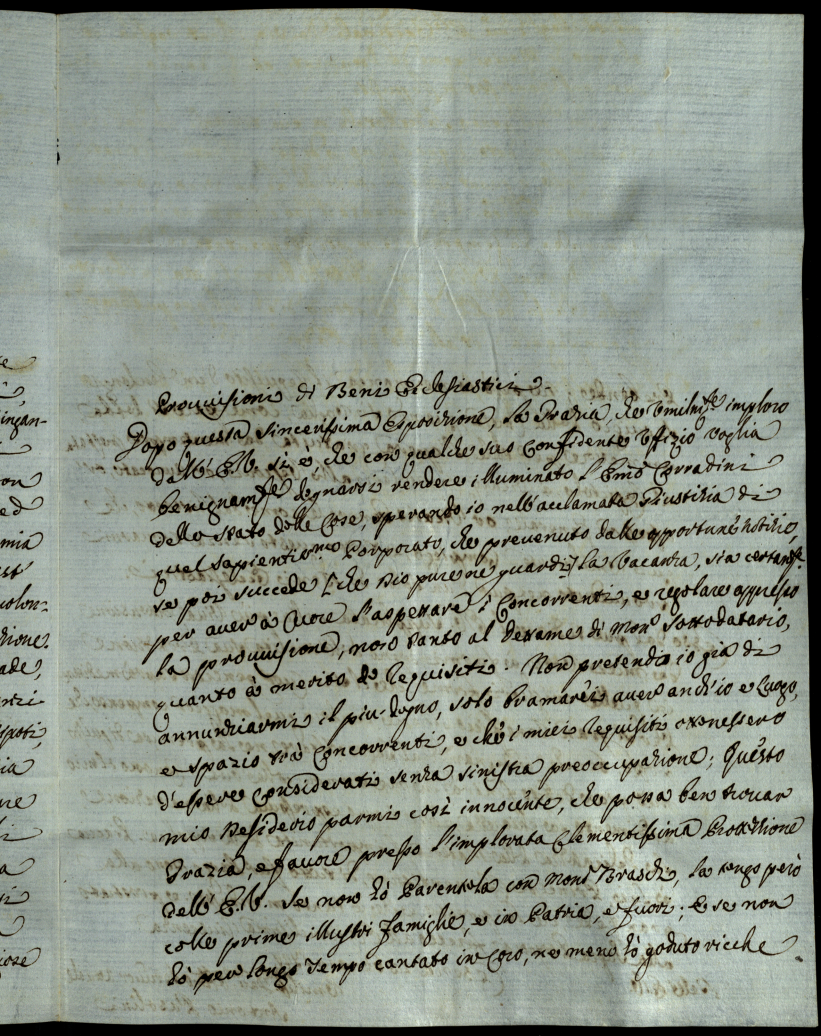 Provvisioni di Beni Ecclesiastici.
Dopo questa sincerissima esposizione, la Grazia, che Umilm.te imploro
dall' E.V. si è, che con qualche suo Confidente Uffizio voglia
benignam.te degnarsi rendere illuminato l'Emo Corradini
dello stato delle Cose, sperando io nell'acclamata Giustizia di
quel sapientis.mo Porporato, che prevenuto dalle opportune notizie,
se poi succede [che Dio pure ne guardi] la Vacanza, sia certam.te
per aver à Cuore l'aspettare i Concorrenti, e regolare appresso
la provvisione, non tanto al dettame di Mon.r Sottodatario,
quanto à merito de requisiti. Non pretendo io già di
annunziarmi il più degno, solo bramarei aver anch'io e luogo,
e spazio trà Concorrenti, e che i miei requisiti ottenessero
d'essere considerati senza sinistra preoccupazione; Questo
mio desiderio parmi così innocente, che possa ben trovar
Grazia, e favore presso l'implorata Clementissima Protezione
dell' E.V. Se non hò Parentela con Mons.r Braschi, la tengo però
colle prime illustri famiglie, e in Patria, e fuori; E se non
hò per longo tempo cantato in Coro, ne meno hò goduto ricche
ingan-
non
ed
mia
volon-
zione.
ade,